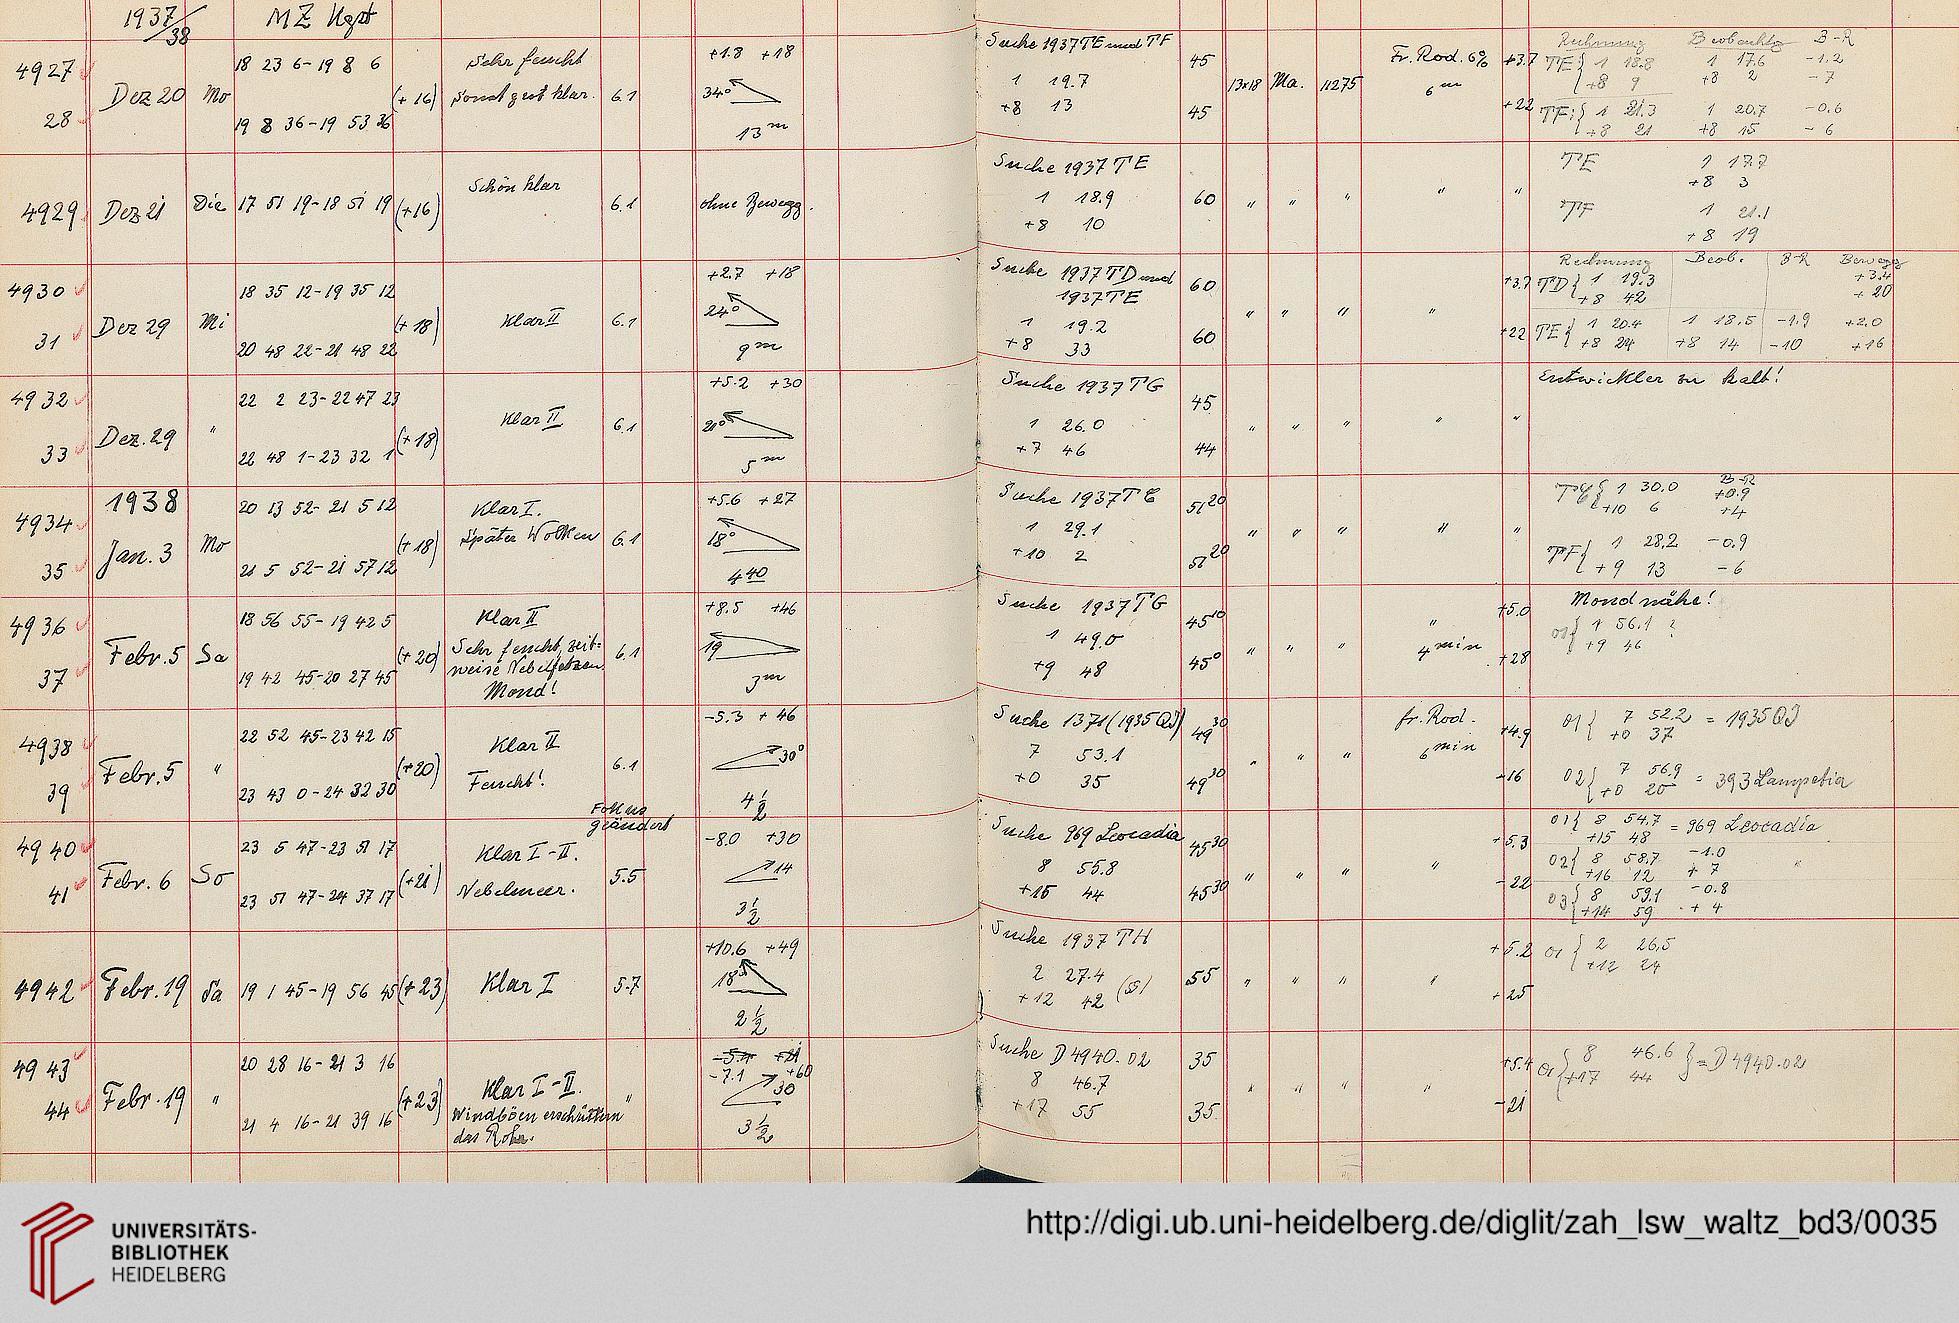 1937/38 MZ Kgst
4927 28 Dez 20 Mo
18 23 6 - 19 8 6
19 8 36 - 19 53 36
(+16)
Sehr feucht
sonst gut klar.
6.1
+1.8 +18
34°
13m
Suche 1937 TE und TF
1 19.7
+8 13
45
45
13×18 Ma. 11275
Fr. Rod. 6%
6m
+3.7
+22
Rechnung Beobachtg B-R
TE { 1 18.8 1 17.6 -1.2
+8 9 +8 2 -7
TF: { 1 21.3 1 20.7 -0.6
+8 21 +8 15 -6
4929 Dez 21 Die 17 51 19 - 18 51 19 (+16)
Schön klar
6.1
ohne Bewegg.
Suche 1937 TE
1 18.9
+8 10
60
" " " " "
TE 1 17.7
+8 3
TF 1 21.1
+8 19
4930 31 Dez 29 Mi
18 35 12 - 19 35 12
20 48 22 - 21 48 22
(+18)
Klar II
6.1
+2.7 +18
24°
9m
Suche 1937 TD und
1937 TE
1 19.2
+8 33
60
60
" " " "
+3.7
+22
Rechnung Beob. B-R Bewegg
TD { 1 19.3 +3.4
+8 42 +20
TE { 1 20.4 1 18.5 -1.9 +2.0
+8 24 +8 14 -10 +16
4932 33 Dez. 29 "
22 2 23 - 22 47 23
22 48 1 - 23 32 1
(+18)
Klar II
6.1
+5.2 +30
20°
5m
Suche 1937 TG
1 26.0
+7 46
45
44
" " " " "
Entwickler zu kalt!
1938
4934 35 Jan. 3 Mo
20 13 52 - 21 5 12
21 5 52 - 21 57 12
(+18)
Klar I.
Später Wolken
6.1
+5.6 +27
18°
4 40
Suche 1937 TE
1 29.1
+10 2
51 20
51 20
" " " " "
B-R
{ 1 30.0 +0.9
+10 6 +4
TF { 1 28.2 -0.9
+9 13 -6
4936 37 Febr. 5 Sa
18 56 55 - 19 42 5
19 42 45 - 20 27 45
(+20)
Klar II
Sehr feucht, zeit-
weise Nebelfetzen
Mond!
6.1
+8.5 +46
19
3m
Suche 1937 TG
1 49.0
+9 48
45 10
45 0
" " " "
4 min
+5.0
+28
Mondnähe!
01 { 1 56.1 ?
+9 46
4938 39 Febr. 5 "
22 52 45 - 23 42 15
23 43 0 - 24 32 30
(+20)
Klar II
Feucht!
6.1
-5.3 +46
30°
4 1/2
Suche 1371 (1935 QJ)
7 53.1
+0 35
49 30
49 30
" " "
fr. Rod.
6 min
+4.9
-16
01 { 7 52.2 = 1935 QJ
+0 37
02 { 7 56.9 = 393 Lampetia
+0 20
4940 41 Febr. 6 So
23 5 47 - 23 51 17
23 51 47 - 24 37 17
(+21)
Klar I-II.
Nebelmeer.
Fokus
geändert
5.5
-8.0 +30
14
3 1/2
Suche 969 Leocadia
8 55.8
+15 44
45 30
45 30
" " " "
+5.3
-22
01 { 8 54.7 = 969 Leocadia
+15 48
02 { 8 58.7 -1.0 "
+16 12 +7
03 { 8 59.1 -0.8
+14 59 +4
4942 Febr. 19 Sa 19 1 45 - 19 56 45 (+23)
Klar I
5.7
+10.6 +49
18°
2 1/2
Suche 1937 TH
2 27.4
+12 42 (55)
55
" " " "
+5.2
+25
01 { 2 26.5
+12 24
4943 44 Febr. 19 "
20 28 16 - 21 3 16
21 4 16 - 21 39 16
(+23)
Klar I-II.
Windböen erschüttern
das Rohr.
"
-5.4 +21
-7.1 +60
30
3 1/2
Suche D4940.02
8 46.7
+17 55
35
35
" " " "
+5.4
-21
01 { 8 46.6 } = D4940.02
+17 44
UNIVERSITÄTS-
BIBLIOTHEK
HEIDELBERG
http://digi.ub.uni-heidelberg.de/diglit/zah_lsw_waltz_bd3/0035